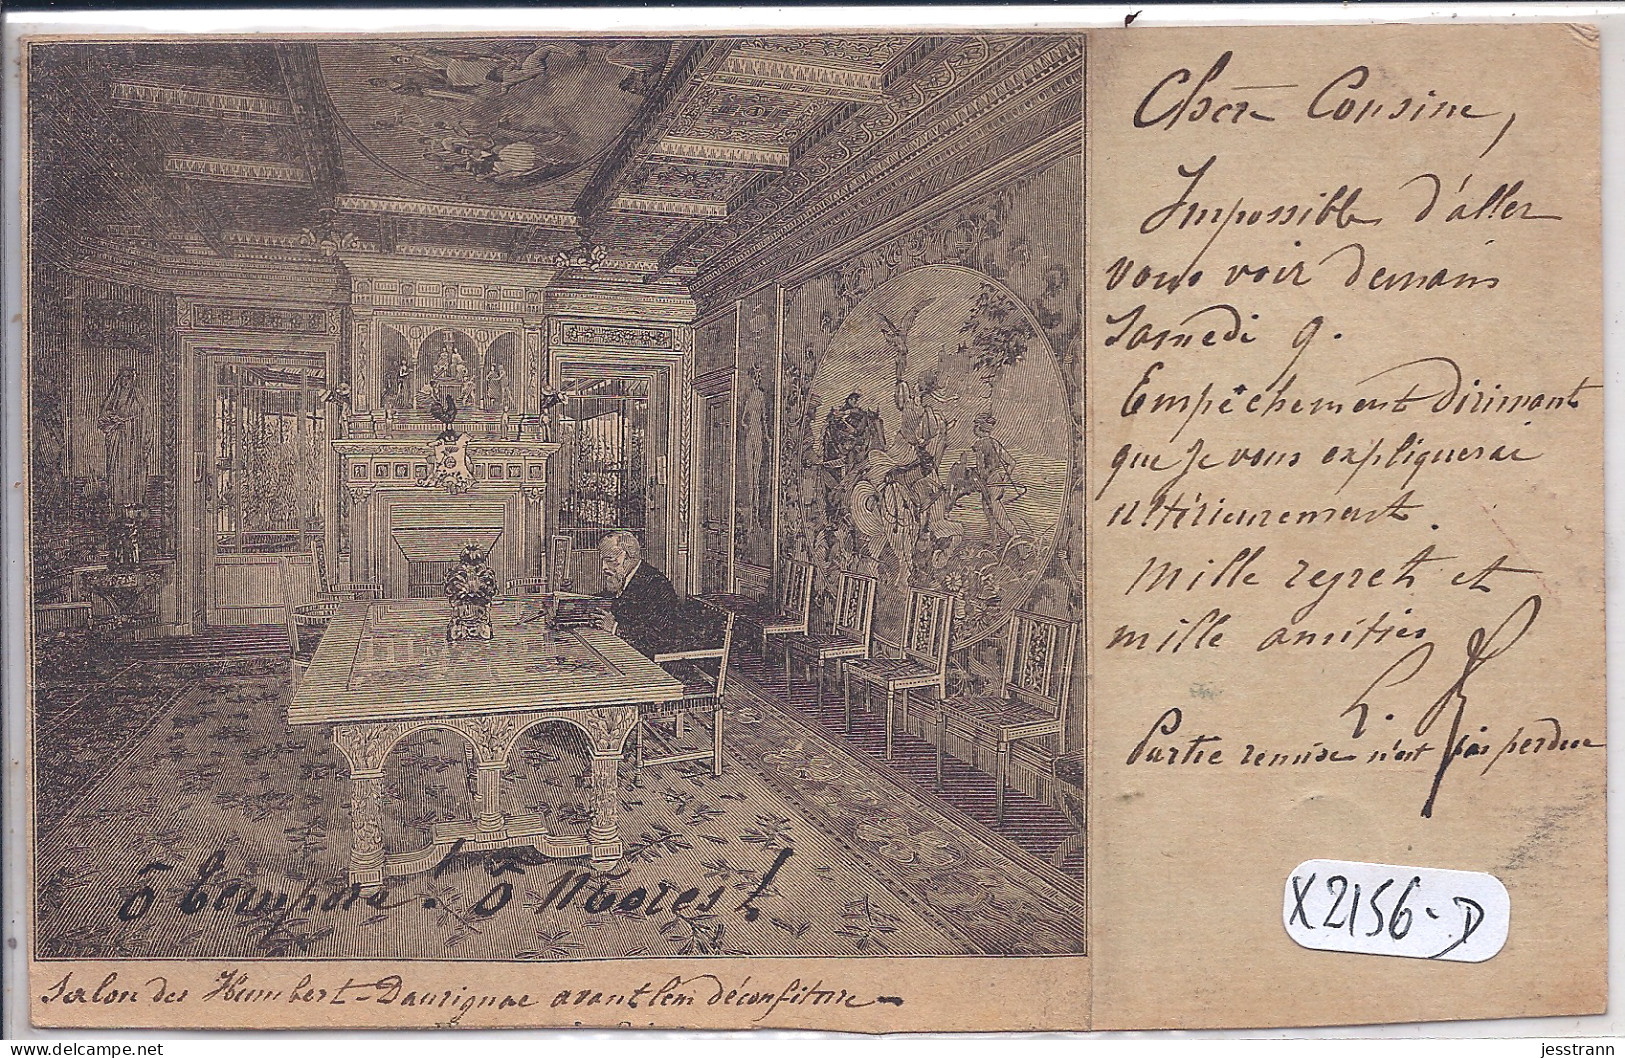 Chère Cousine,
Impossible d'aller
vous voir demain
Samedi 9.
Empêchement dirimant
que je vous expliquerai
ultérieurement.
Mille regrets et
mille amitiés
L.
Partie remise n'est pas perdue
ô tempora! ô Mores!
Salon des Humbert-Daurignac avant leur déconfiture
X2156-D
jesstrann